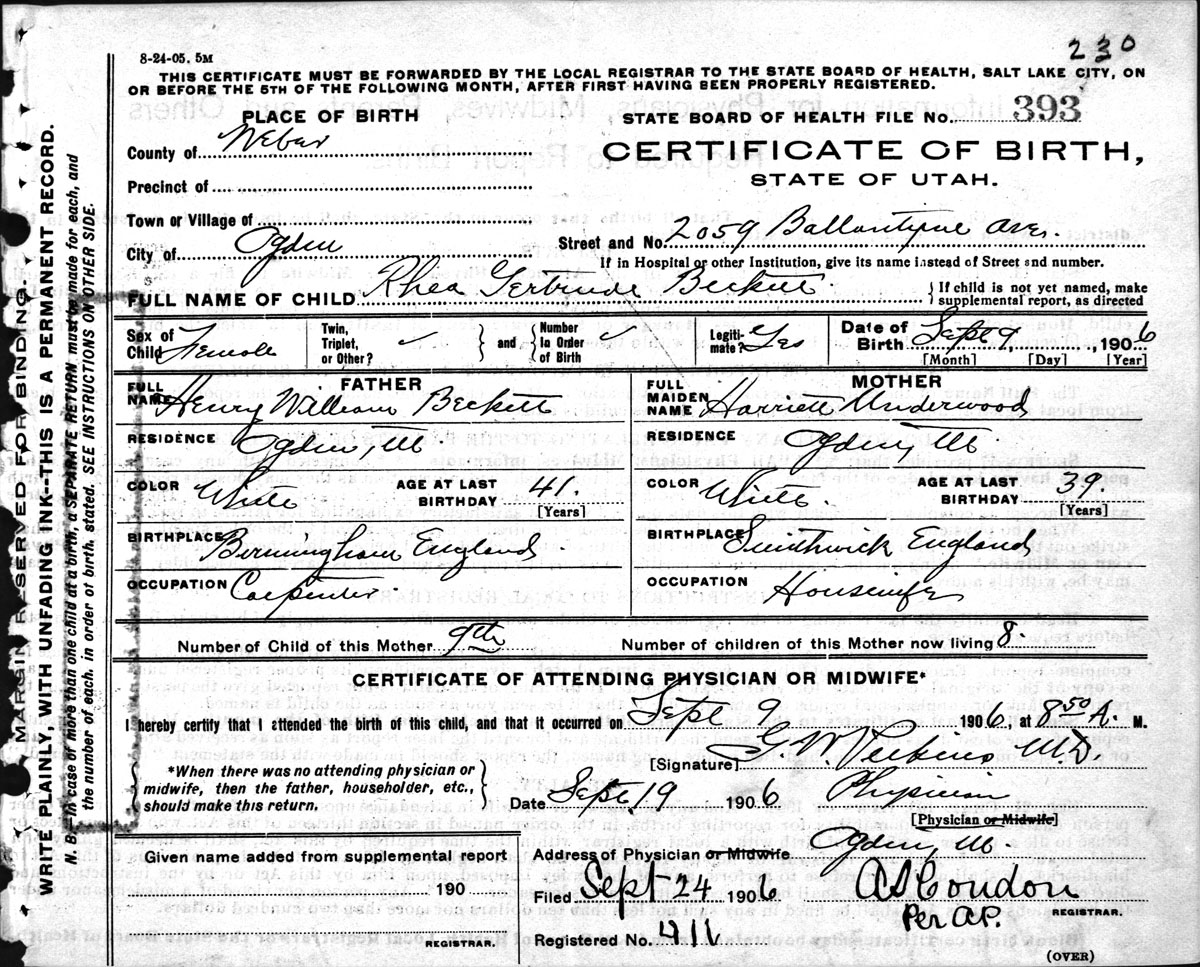 230
8-24-05. 5M
THIS CERTIFICATE MUST BE FORWARDED BY THE LOCAL REGISTRAR TO THE STATE BOARD OF HEALTH, SALT LAKE CITY, ON
OR BEFORE THE 5TH OF THE FOLLOWING MONTH, AFTER FIRST HAVING BEEN PROPERLY REGISTERED.
PLACE OF BIRTH
STATE BOARD OF HEALTH FILE No. 393
County of Weber
CERTIFICATE OF BIRTH,
Precinct of
STATE OF UTAH.
Town or Village of
City of Ogden
Street and No. 2059 Ballantyne Ave.
If in Hospital or other Institution, give its name instead of Street and number.
FULL NAME OF CHILD Rhea Gertrude Beckett
} If child is not yet named, make
supplemental report, as directed
Sex of Child Female
Twin, Triplet, or Other?
} and {
Number In Order of Birth
Legitimate? Yes
Date of Birth Sept 9, 1906
[Month] [Day] [Year]
FATHER
MOTHER
FULL NAME Henry William Beckett
FULL MAIDEN NAME Harriett Underwood
RESIDENCE Ogden, Ut
RESIDENCE Ogden, Ut
COLOR White
AGE AT LAST BIRTHDAY 41.
[Years]
COLOR White.
AGE AT LAST BIRTHDAY 39.
[Years]
BIRTHPLACE Birmingham England
BIRTHPLACE Smithwick England
OCCUPATION Carpenter
OCCUPATION Housewife
Number of Child of this Mother 9th
Number of children of this Mother now living 8.
CERTIFICATE OF ATTENDING PHYSICIAN OR MIDWIFE*
I hereby certify that I attended the birth of this child, and that it occurred Sept 9 1906, at 8 50 A. M.
[Signature] M.D.
*When there was no attending physician or
midwife, then the father, householder, etc.,
should make this return. }
Date Sept 19 1906
Physician
[Physician or Midwife]
Given name added from supplemental report
190
REGISTRAR.
Address of Physician or Midwife Ogden, Ut.
Filed Sept 24 1906
A S Condon
REGISTRAR.
Per A.P.
Registered No. 411
(OVER)
MARGIN RESERVED FOR BINDING.
WRITE PLAINLY, WITH UNFADING INK--THIS IS A PERMANENT RECORD.
N. B.--In case of more than one child at a birth, a SEPARATE RETURN must be made for each, and
the number of each, in order of birth, stated. SEE INSTRUCTIONS ON OTHER SIDE.